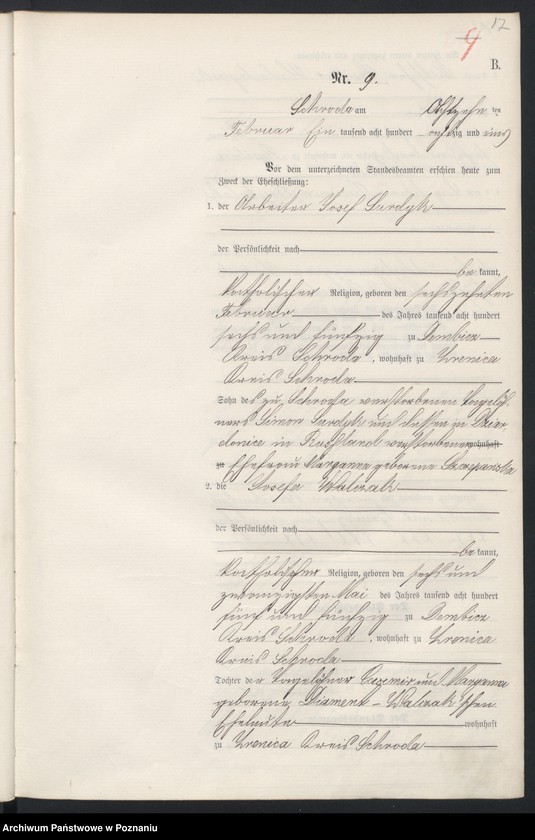 17
9
B.
Nr. 9.
Schroda am Achtzehn ten
Februar Ein tausend acht hundert achtzig und eins
Vor dem unterzeichneten Standesbeamten erschien heute zum
Zweck der Eheschließung:
1. der Arbeiter Josef Surdyk
der Persönlichkeit nach
be kannt,
katholischer Religion, geboren den sechszehnten
Februar des Jahres tausend acht hundert
sechs und fünfzig zu Dembicz
Kreis Schroda, wohnhaft zu Urenica
Kreis Schroda
Sohn des zu Schroda verstorbenen Tagelöh-
ners Simon Surdyk und dessen in
in Russland verstorbenen wohnhaft
zu Ehefrau Maryanna geborene Szczepanska
2. die Josefa Walczak
der Persönlichkeit nach
be kannt,
katholischer Religion, geboren den sechs und
zwanzigsten Mai des Jahres tausend acht hundert
fünf und fünfzig zu Dembicz
Kreis Schroda, wohnhaft zu Urenica
Kreis Schroda
Tochter der Tagelöhner Casimir und Maryanna
geborene Diament - Walczak'schen
Eheleute wohnhaft
zu Urenica Kreis Schroda
Archiwum Państwowe w Poznaniu